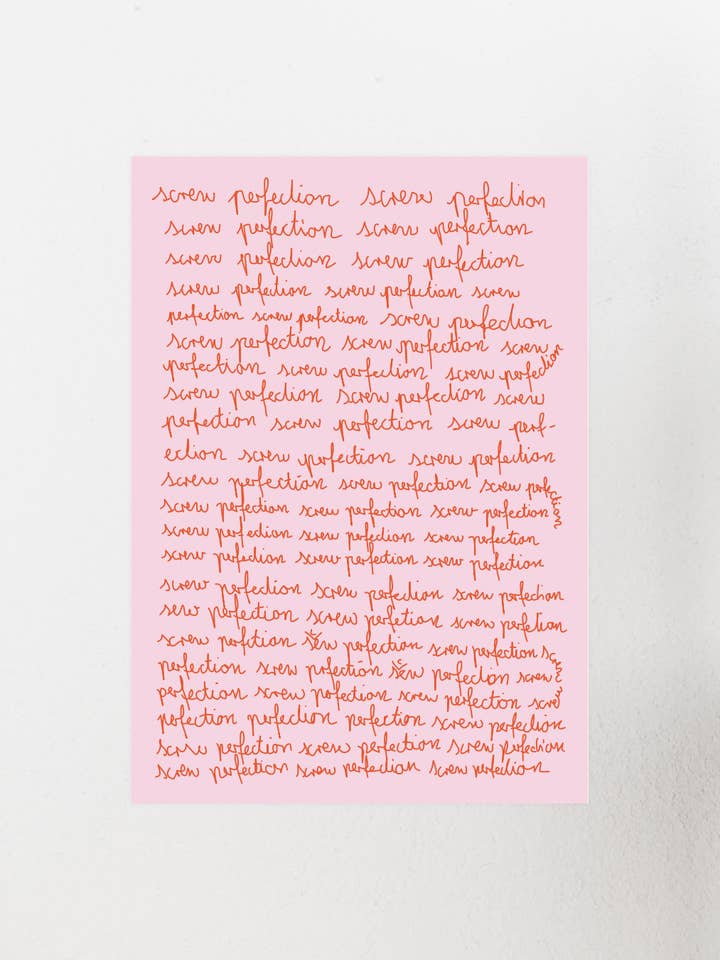 screw perfection screw perfection
screw perfection screw perfection
screw perfection screw perfection
screw perfection screw perfection screw
perfection screw perfection screw perfection
screw perfection screw perfection screw
perfection screw perfection screw perfection
screw perfection screw perfection screw
perfection screw perfection screw perf-
ection screw perfection screw perfection
screw perfection screw perfection screw perfection
screw perfection screw perfection screw perfection
screw perfection screw perfection screw perfection
screw perfection screw perfection screw perfection
screw perfection screw perfection screw perfection
serw perfection screw perfetion screw perfetion
screw perfetion screw perfection screw perfection screw
perfection screw prfection screw perfection screw
perfection screw perfection screw perfection screw
perfection perfection perfection screw perfection
screw perfection screw perfection screw perfection
screw perfection screw perfection screw perfection